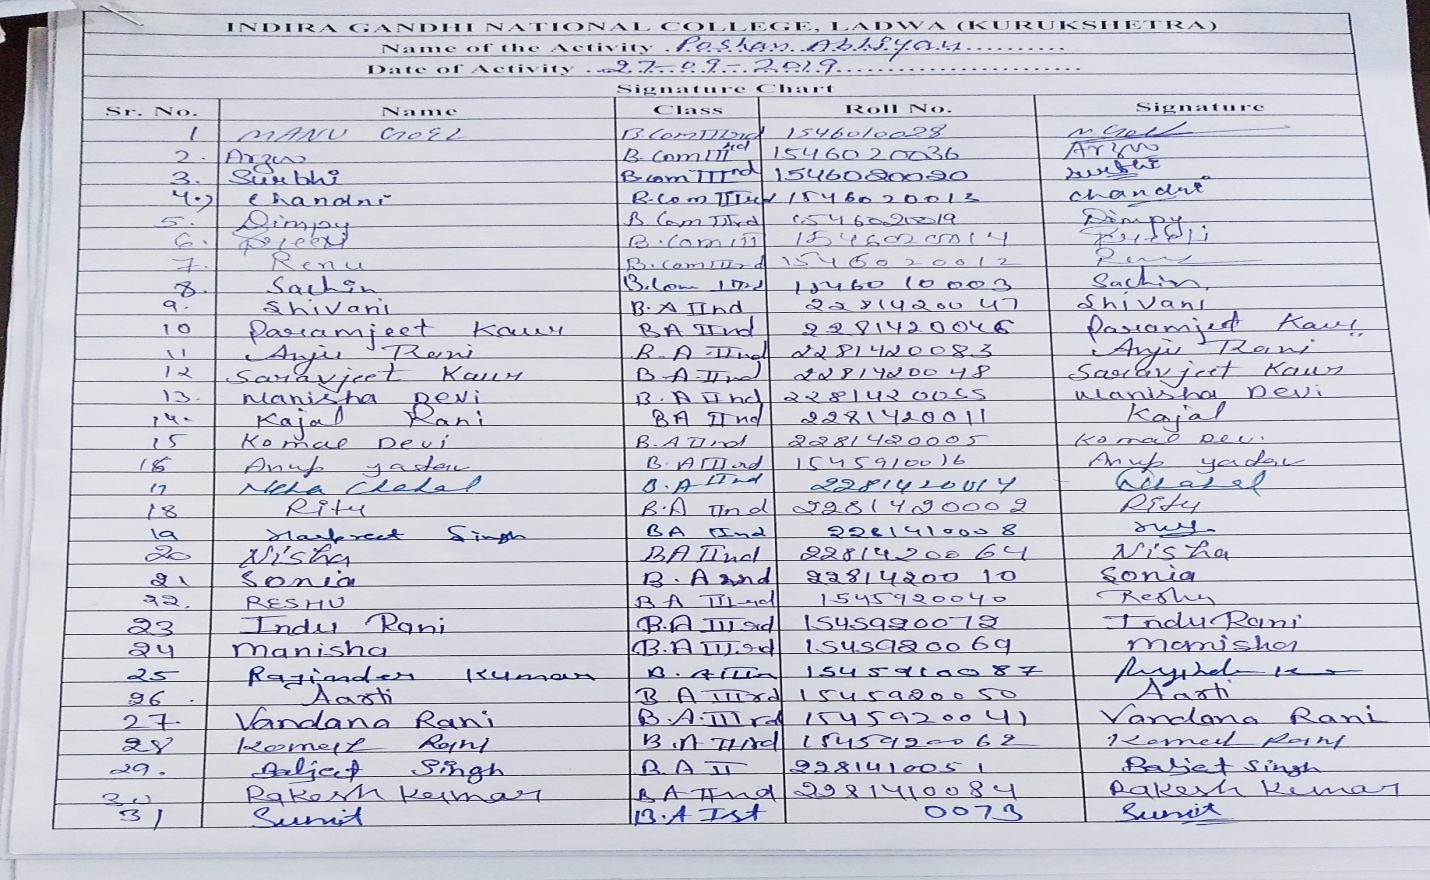 INDIRA GANDHI NATIONAL COLLEGE, LADWA (KURUKSHETRA)
Name of the Activity . Poshan Abhiyan..........
Date of Activity ..27-09-2019........................
Signature Chart
Sr. No. Name Class Roll No. Signature
1 MANU GOEL B.Com IIIrd 1546010028 M. Goel
2. Arzoo B. Com IIIrd 1546020036 Arzoo
3. Surbhi B.com IIIrd 1546020020 Surbhi
4.) Chandni B.Com IIIrd 1546020013 Chandni
5. Dimpy B. Com IIIrd 1546020019 Dimpy
6. B.Com III 1546020014
7. Renu B.Com IIIrd 1546020012 Renu
8. Sachin B.Com IIIrd 1546010003 Sachin
9. Shivani B.A IInd 2281420047 Shivani
10 Paramjeet Kaur BA IInd 2281420046 Paramjeet Kaur
11 Anju Rani B.A IInd 2281420083 Anju Rani
12 Saravjeet Kaur B.A IInd 2281420048 Saravjeet Kaur
13. Manisha Devi B.A IInd 2281420055 Manisha Devi
14. Kajal Rani BA IInd 2281420011 Kajal
15 Komal Devi B.A IInd 2281420005 Komal Devi
16 Anup yadav B.A IIIrd 1545910016 Anup yadav
17 Neha Chahal B.A IInd 2281420014 Chahal
18 Ritu B.A IInd 2281420002 Ritu
19 Harpreet Singh BA IInd 2281410008
20 Nisha BA IInd 2281420064 Nisha
21 Sonia B.A 2nd 2281420010 Sonia
22. RESHU BA IIIrd 1545920040 Reshu
23 Indu Rani B.A IIIrd 1545920072 Indu Rani
24 Manisha B.A IIIrd 1545920069 Manisha
25 Rajinder Kumar 1545910087
26 Aarti B A IIIrd 1545920050 Aarti
27. Vandana Rani B.A.IIIrd 1545920041 Vandana Rani
28 Komal Rani B.A IIIrd 1545920062 Komal Rani
29. Baljeet Singh B.A II 2281410051 Baljet Singh
30 Rakesh Kumar BA IInd 2281410084 Rakesh Kumar
31 Sumit B.A Ist 0073 Sumit